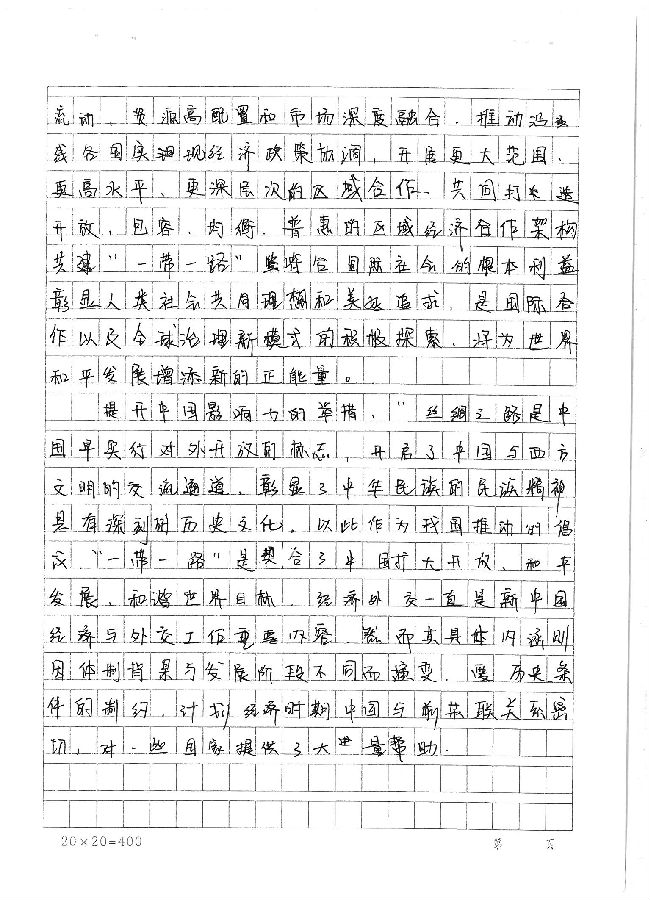 流动、资源高配置和市场深度融合,推动沿
线各国实现经济政策协调,开展更大范围、
更高水平、更深层次的区域合作、共同打造
开放、包容、均衡、普惠的区域经济合作架构
共建“一带一路”符合国际社会的根本利益
彰显人类社会共同理想和美好追求,是国际合
作以及全球治理新模式的积极探索,将为世界
和平发展增添新的正能量。
提升中国影响力的举措,“丝绸之路是中
国早实行对外开放的标志,开启了中国与西方
文明的交流通道,彰显了中华民族的民族精神
具有深刻的历史文化,以此作为我国推动的倡
议,“一带一路”是契合了中国扩大开放、和平
发展、和谐世界目标,经济外交一直是新中国
经济与外交工作重要内容,然而其具体内涵则
因体制背景与发展阶段不同而演变,受历史条
件的制约,计划经济时期中国与前苏联关系密
切,对一些国家提供了大量帮助.
20×20=400
第 页